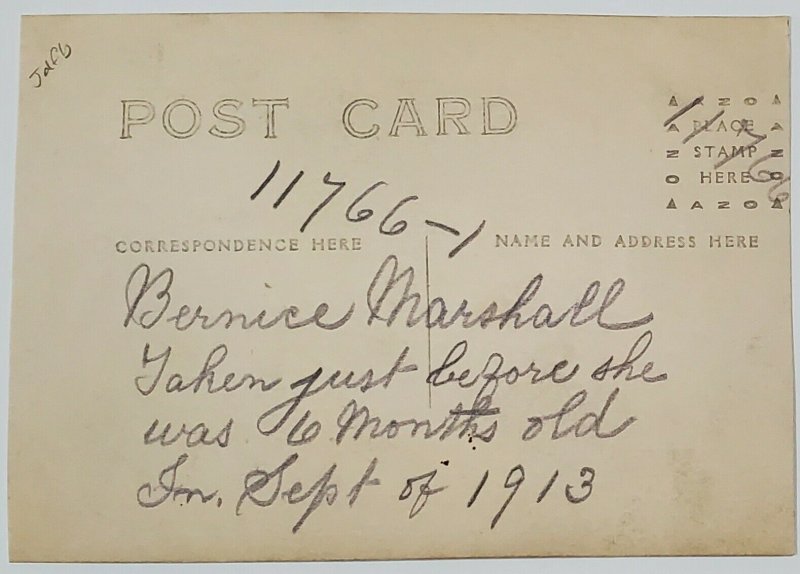 POST CARD
AZO
PLACE
STAMP
HERE
AZO
11766
11766-1
CORRESPONDENCE HERE
NAME AND ADDRESS HERE
Bernice Marshall
Taken just before she
was 6 Months old
In. Sept of 1913